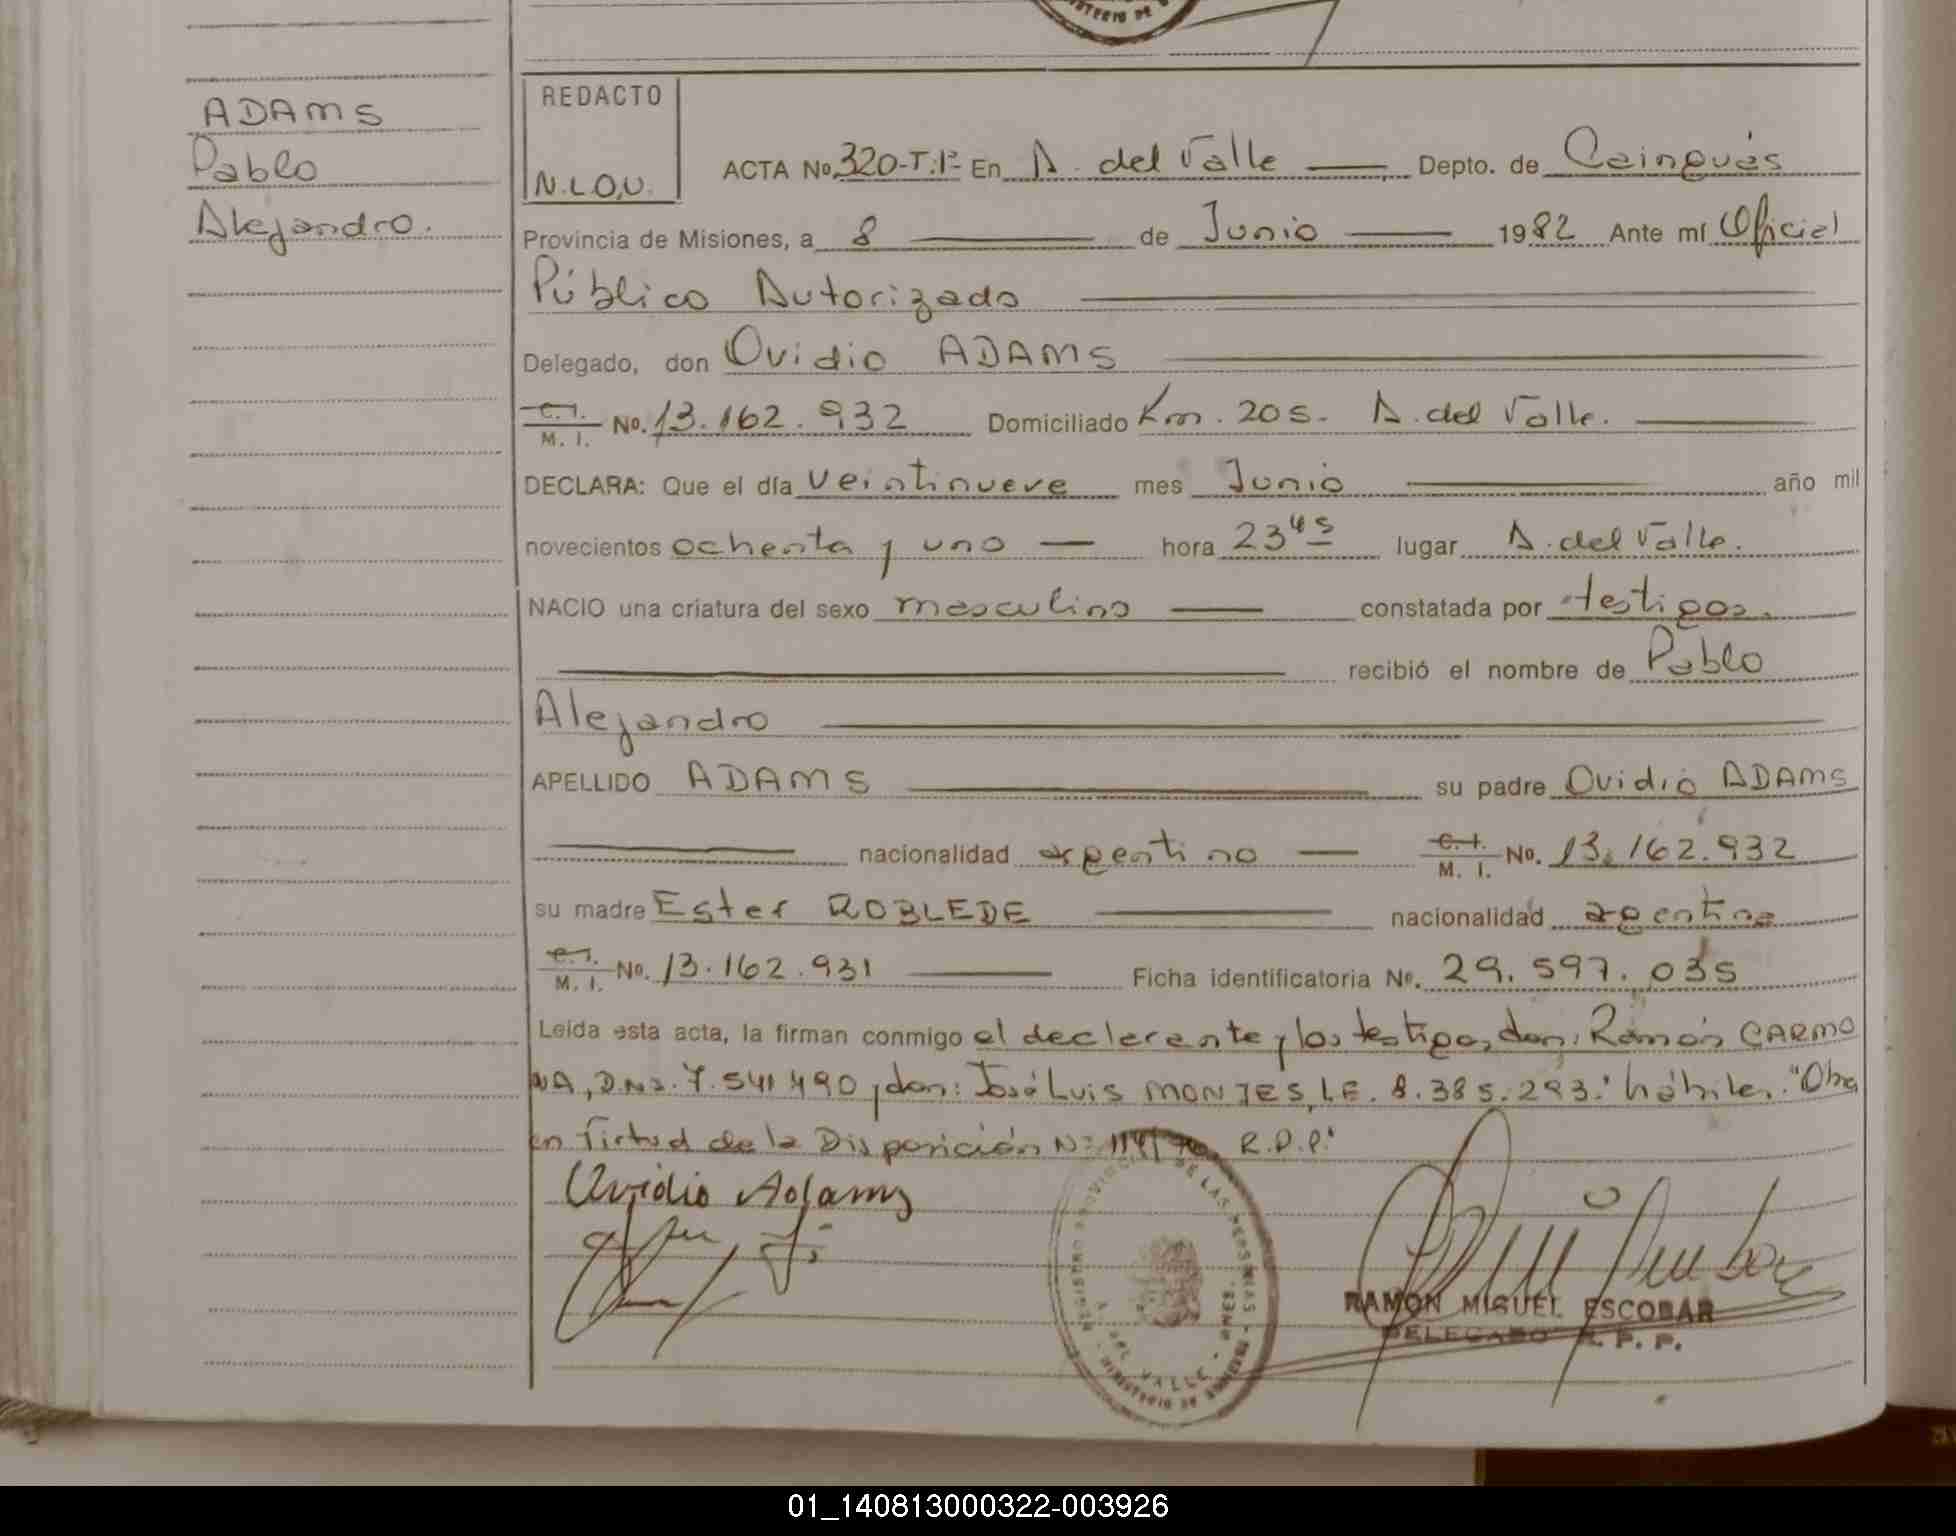 ADAMS
Pablo
Alejandro.
REDACTO
N.L.O.U.
ACTA No. 320-T:1º- En A. del Valle Depto. de Cainguás
Provincia de Misiones, a 8 de Junio 1982 Ante mí Oficial
Público Autorizado
Delegado, don Ovidio ADAMS
C.I. M. I. No. 13.162.932 Domiciliado Km. 205- A. del Valle.
DECLARA: Que el día veintinueve mes Junio año mil
novecientos ochenta y uno hora 23 45 lugar A. del Valle.
NACIO una criatura del sexo masculino constatada por testigos.
recibió el nombre de Pablo
Alejandro
APELLIDO ADAMS su padre Ovidio ADAMS
nacionalidad argentino C.I. M. I. No. 13.162.932
su madre Ester ROBLEDE nacionalidad argentina
C.I. M. I. No. 13.162.931 Ficha identificatoria No. 29.597.035
Leída esta acta, la firman conmigo el declarante y los testigos, don: Ramón CARMO
NA, D.N.I. 7.541.490 y don: José Luis MONTES, L.E. 8.385.293. hábiles. "Obra
en Virtud de la Disposición Nº 114/ R.P.P."
Ovidio Adams
REGISTRO PROVINCIAL DE LAS PERSONAS
A. DEL VALLE - MNES.
MINISTERIO DE
RAMON MIGUEL ESCOBAR
DELEGADO R. P. P.
01_140813000322-003926